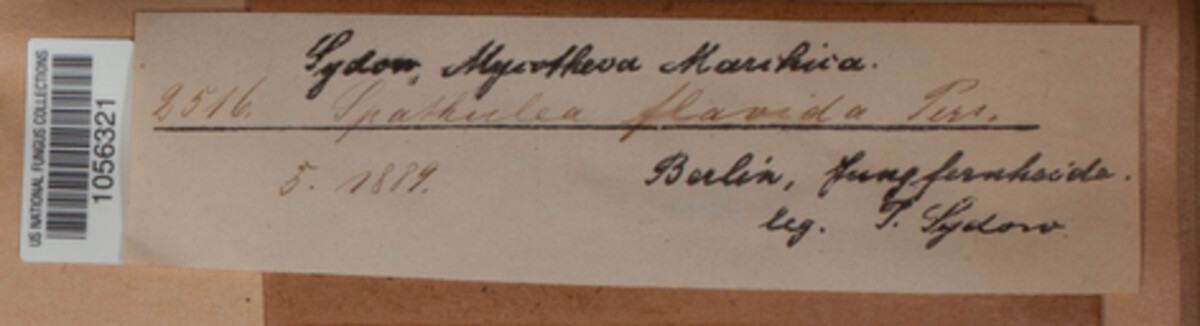 Sydow, Mycotheca Marchica.
2516. Spathulea flavida Pers.
5. 1889.
Berlin, Jungfernheide.
leg. P. Sydow
US NATIONAL FUNGUS COLLECTIONS
10563321